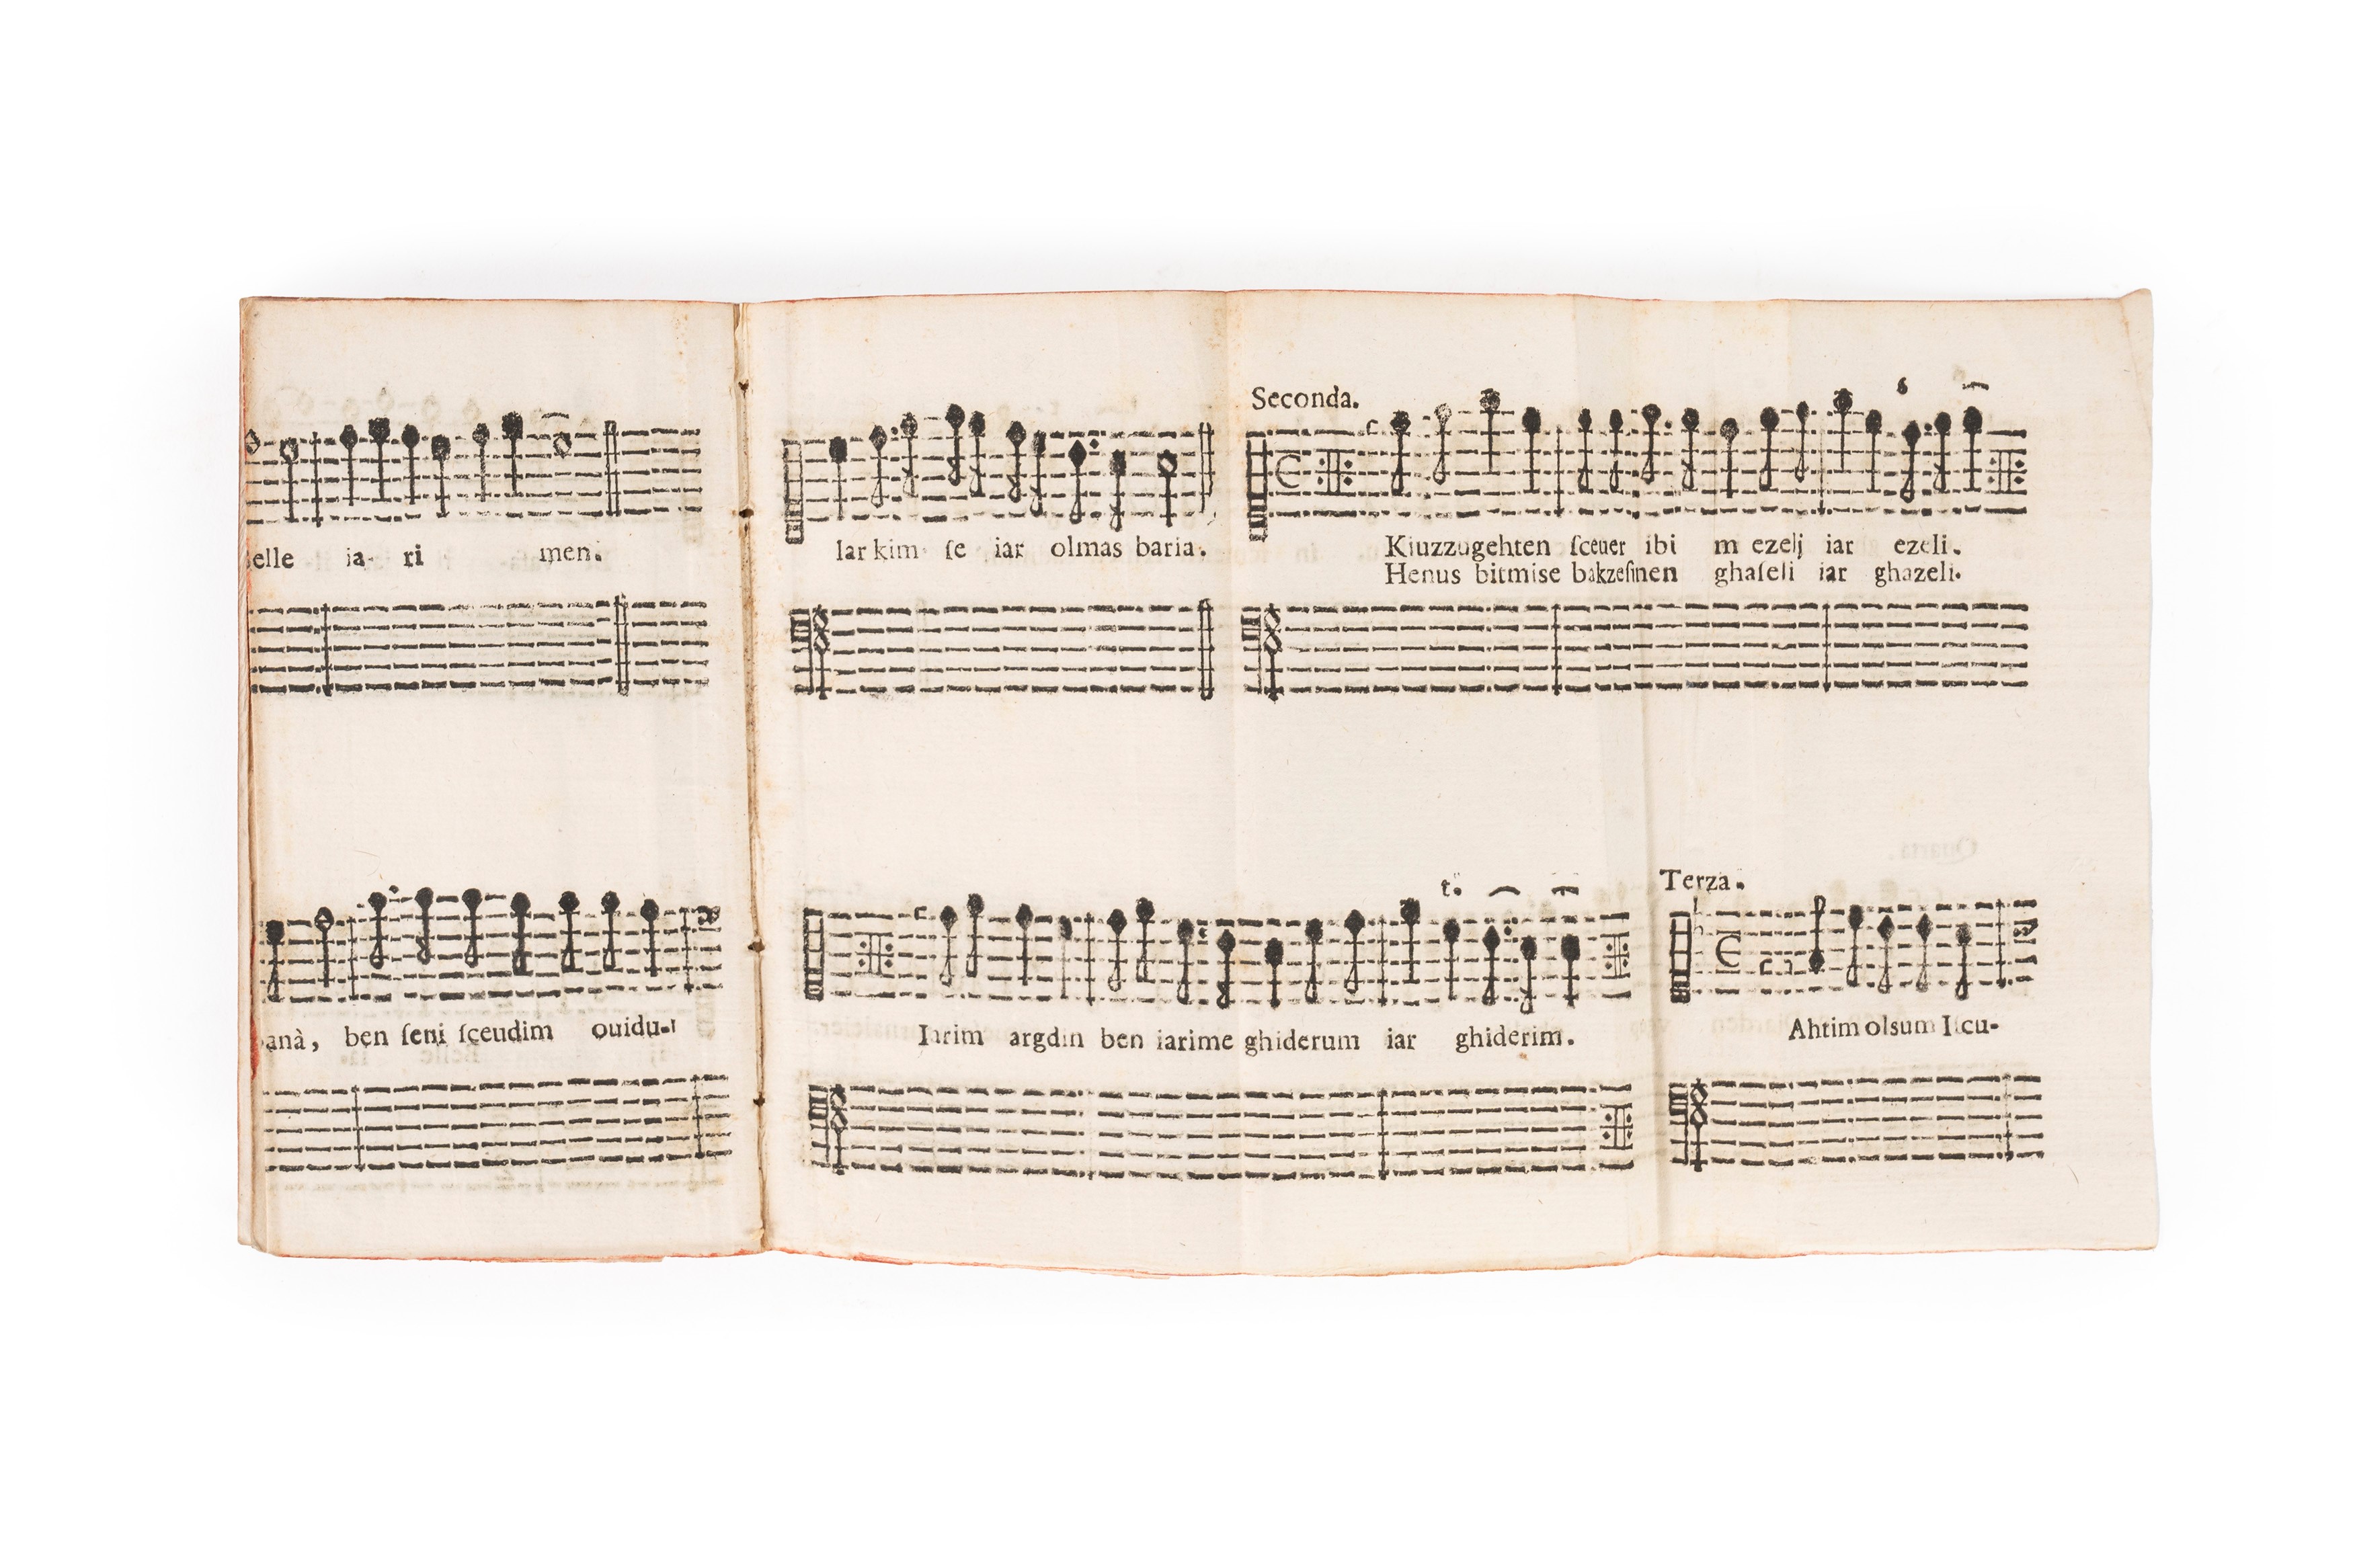 Seconda.
elle ia- ri men.
Iar kim ſe iar olmas baria.
Kiuzzugehten ſceuer ibi m ezelj iar ezeli.
Henus bitmise bakzeſinen ghaſeli iar ghazeli.
t.
Terza.
anà, ben ſeni ſceudim ouidu-
Iarim argdin ben iarime ghiderum iar ghiderim.
Ahtim olsum